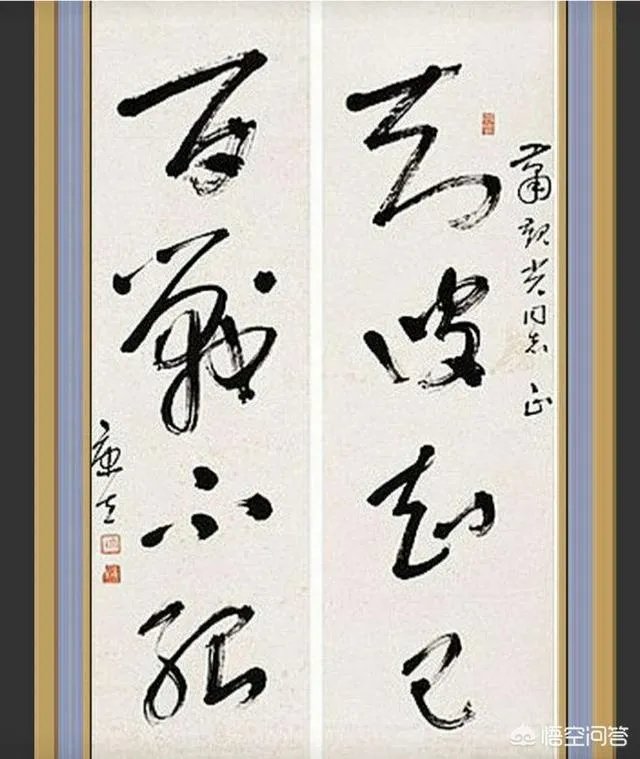 蕭光同志 正
知彼知己
百戰不殆
康生
悟空问答